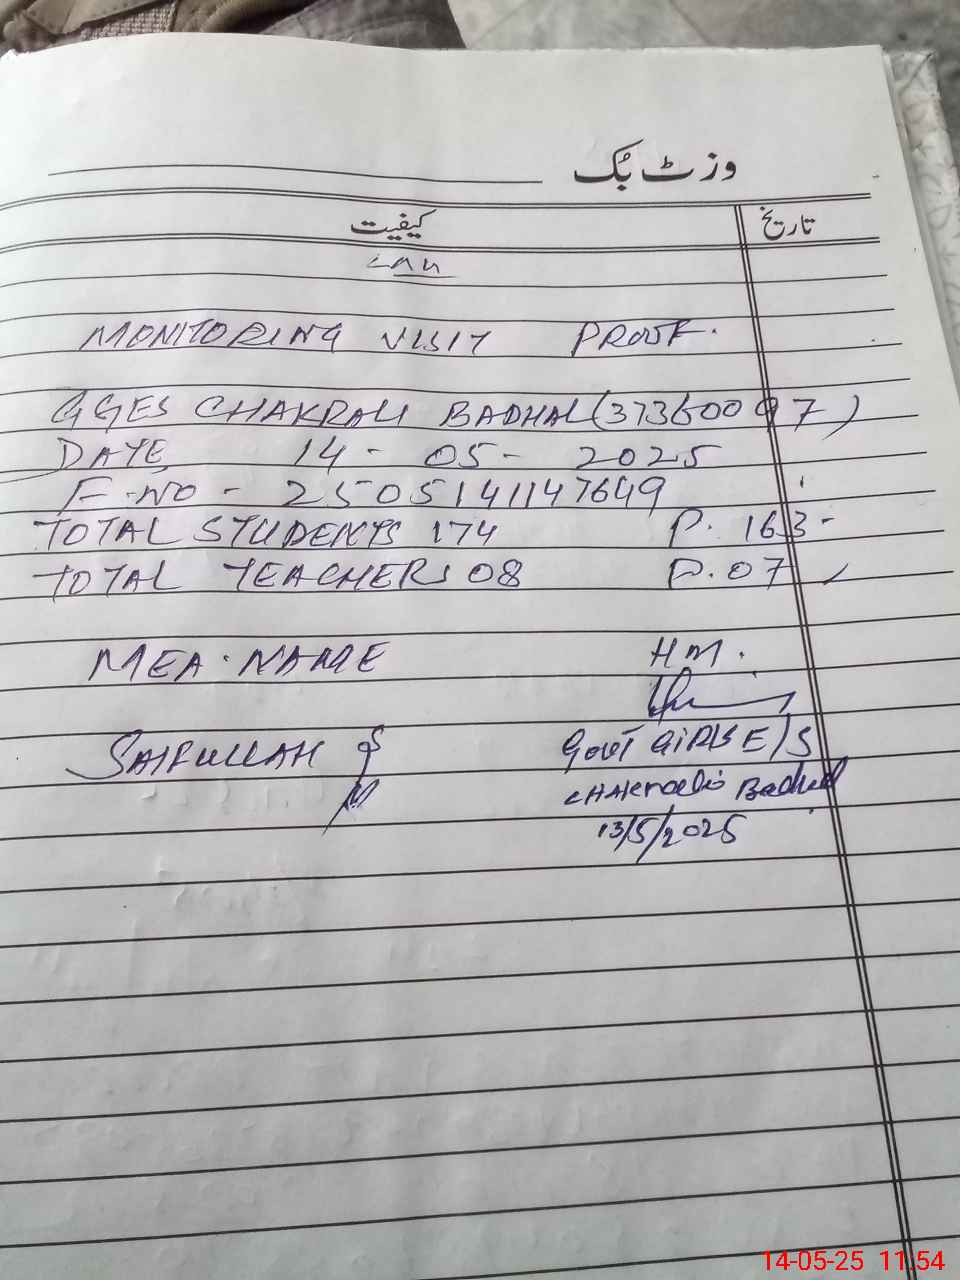 وزٹ بُک
کیفیت تاریخ
MONITORING VISIT PROOF.
GGES CHAKRALI BADHAL (37360097)
DATE 14-05-2025
F.NO - 2505141147649
TOTAL STUDENTS 174 P. 163-
TOTAL TEACHERS 08 P. 07
MEA. NAME H M.
SAIFULLAH GOVT GIRLS E/S
CHAKRALI Badhal
13/5/2025
14-05-25 11:54